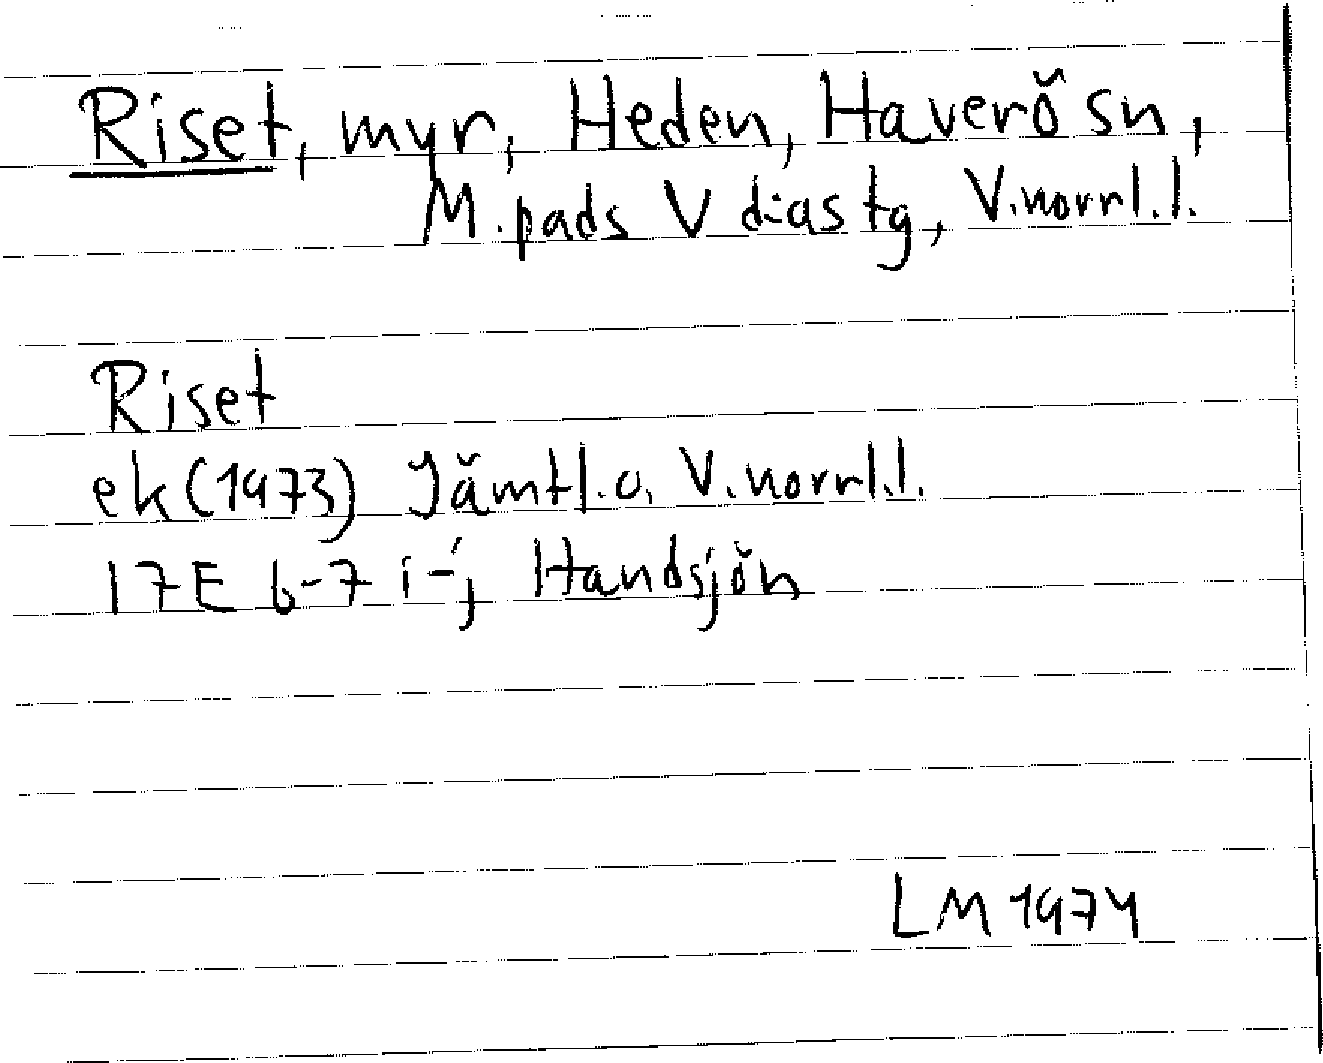 Riset, myr, Heden, Haverö sn,
M.pads V d:as tg, V.norrl.l.
Riset
ek(1973) Jämtl.o. V.norrl.l.
17E 6-7 i-j Handsjön
LM 1974